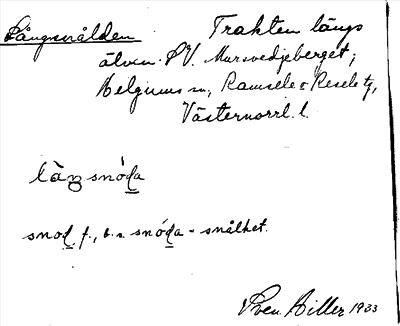 Långsnålden Trakten längs
älven. SV. Mursvedjeberget;
Helgums sn, Ramsele o Resele tg,
Västernorrl. l.
làŋsnóda
snod f., b. s. snóda = snålhet.
Sven Hiller 1933